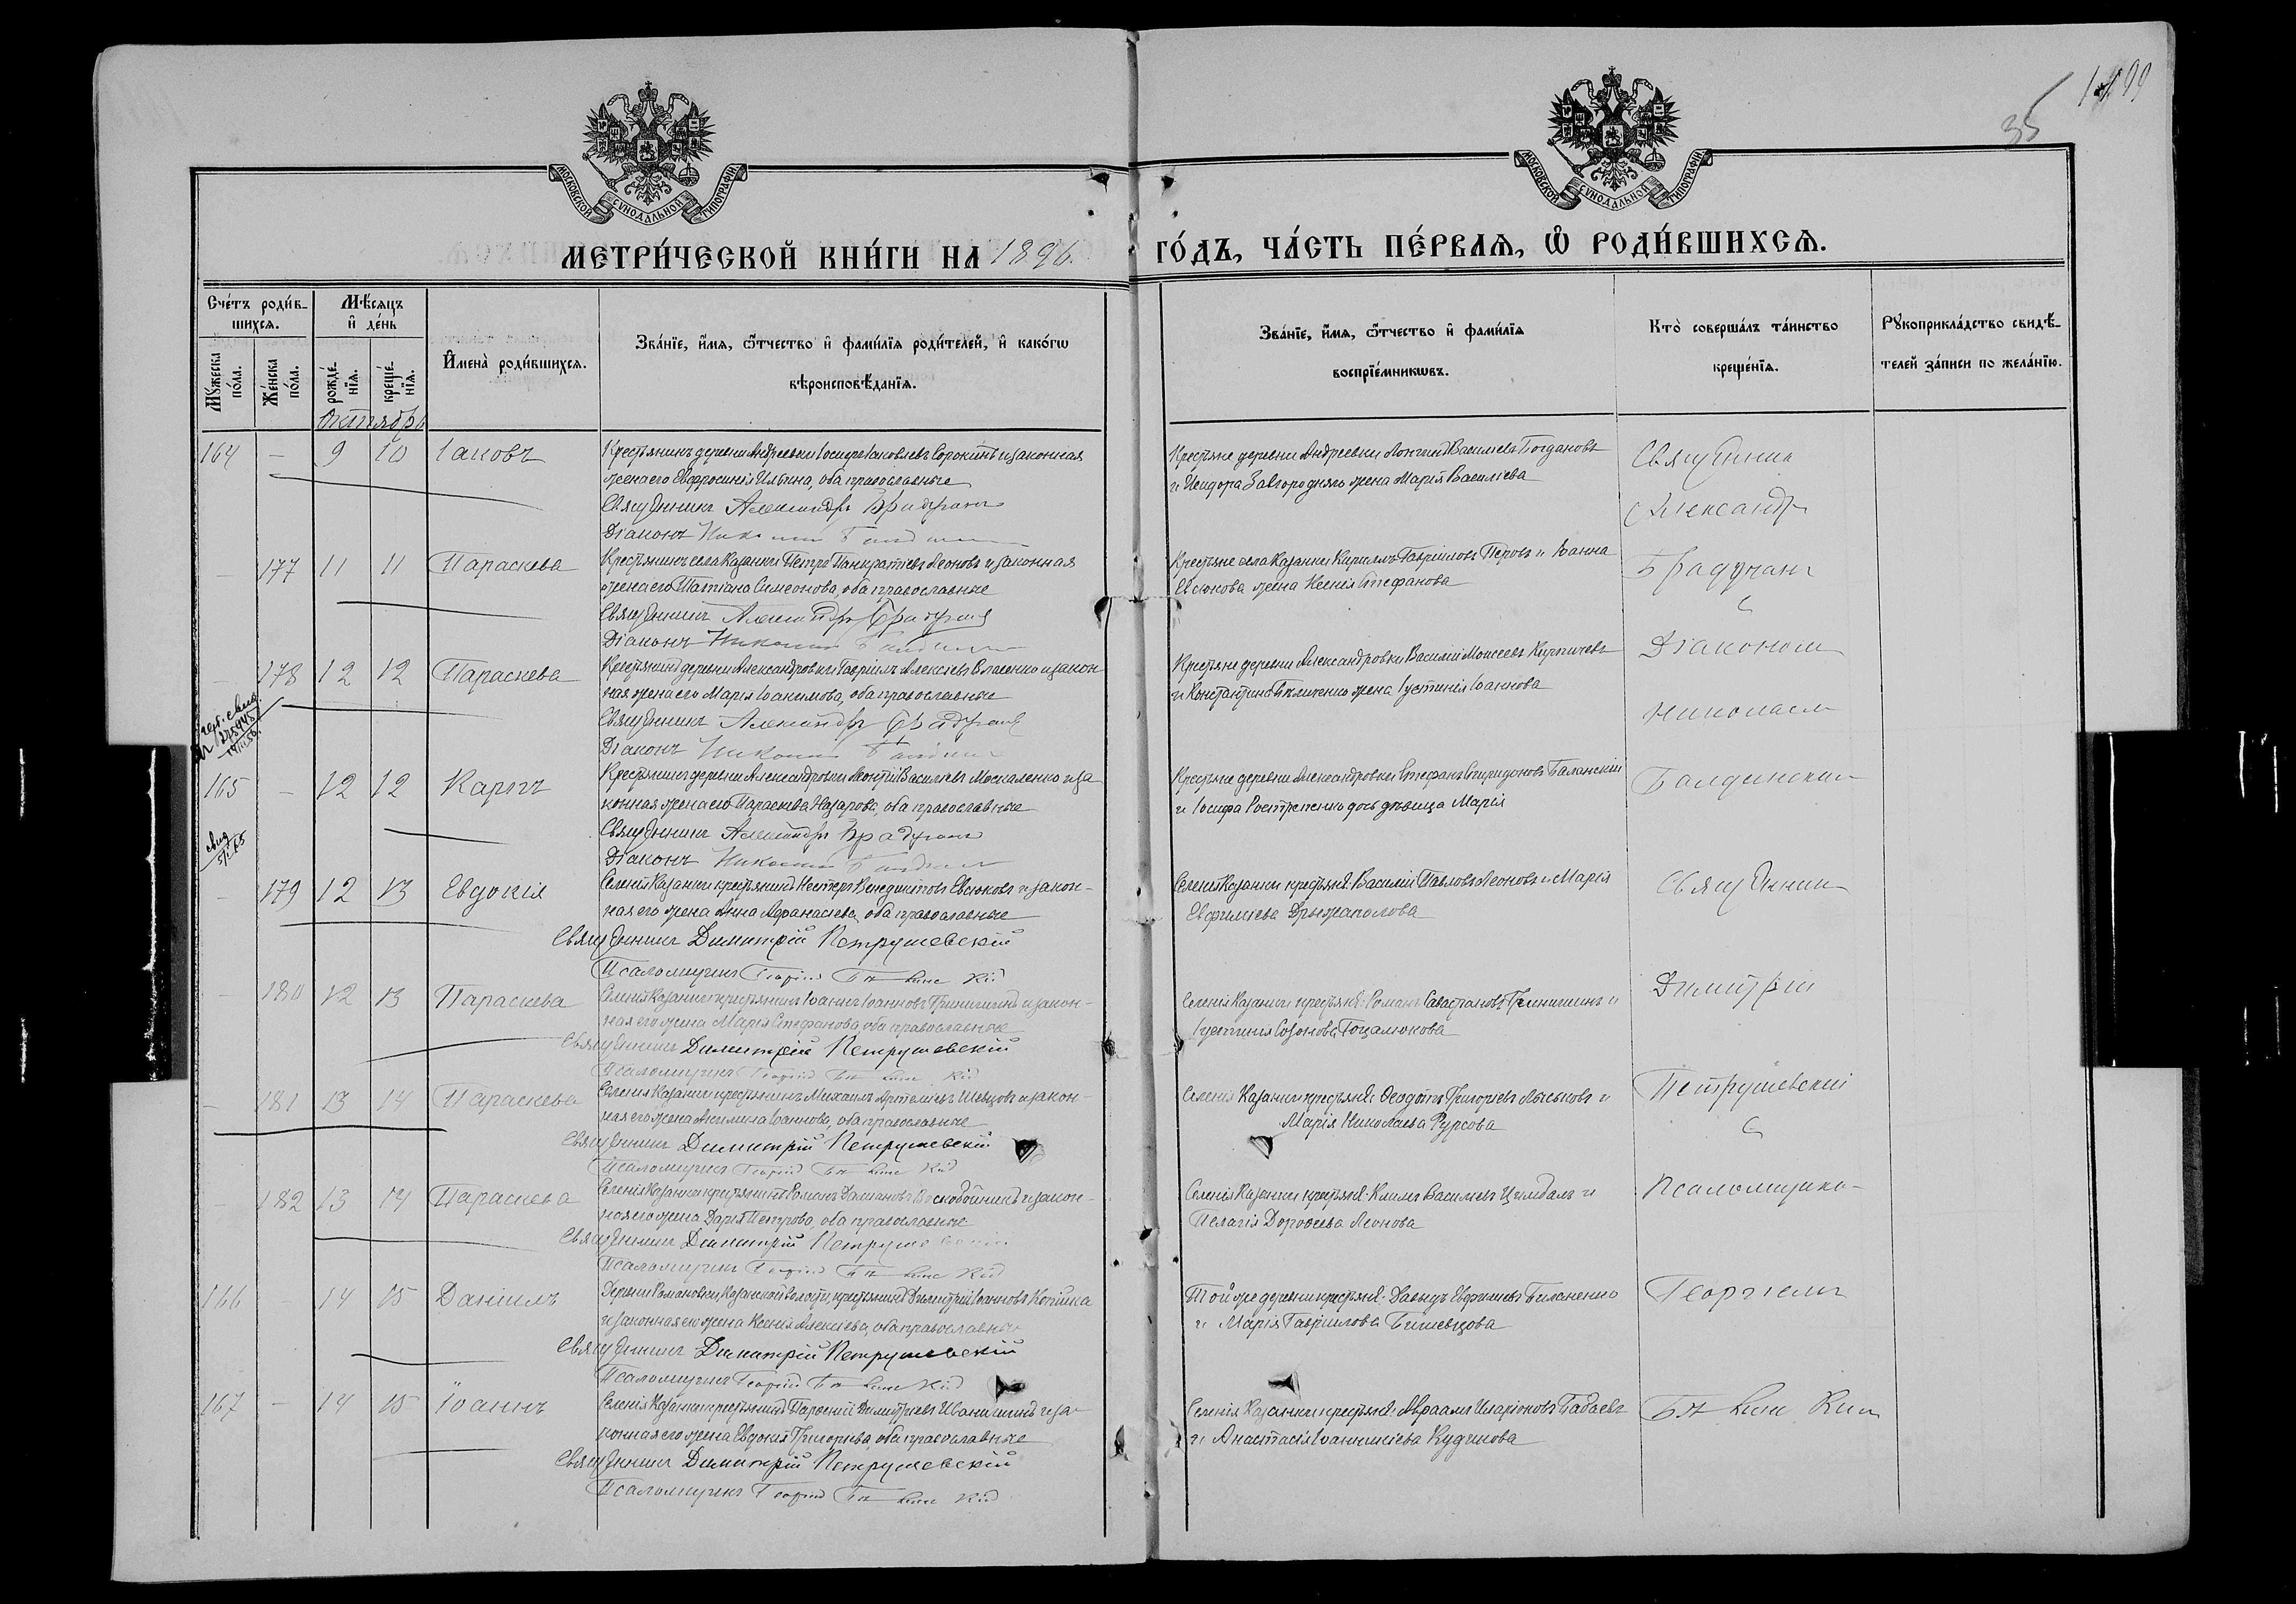 1899
35
МОСКОВСКОЙ СѴНОДАЛЬНОЙ ТИПОГРАФІИ
МОСКОВСКОЙ СѴНОДАЛЬНОЙ ТИПОГРАФІИ
МЕТРИ́ЧЕСКОЙ КНИ́ГИ НА 1896 ГО́ДЪ, ЧА́СТЬ ПЕ́РВАѦ, Ѿ РОДИ́ВШИХСѦ.
Сче́тъ роди́в-
шихсѧ.
Мꙋ́жеска по́ла.
Же́нска по́ла.
Мѣ́сѧцъ
и҆ де́нь
рожде́нїѧ.
креще́нїѧ.
И҆мена̀ роди́вшихсѧ.
Зва́нїе, и҆́мѧ, ѻ҆́тчество и҆ фами́лїѧ роди́телей, и҆ како́гѡ
вѣроисповѣ́данїѧ.
Зва́нїе, и҆́мѧ, ѻ҆́тчество и҆ фами́лїѧ
воспрїе́мникѡвъ.
Кто̀ соверша́лъ та́инство
креще́нїѧ.
Рꙋкоприкла́дство свидѣ́-
телей за́писи по жела́нїю.
Октябрь
164 — 9 10 Іаковъ
Крестьянинъ деревни Андреевки Іосифъ Іаковлевъ Сорокинъ и законная
жена его Евфросинія Ильина, оба православные
Священникъ Александръ Брадучанъ
Діаконъ Николай
Крестьяне деревни Андреевки Логгинъ Василіевъ Богдановъ
и Исидора Завгородняго жена Марія Василіева
Священникъ
Александръ
Брадучанъ
с
Діакономъ
Николаемъ
Балдинскимъ
— 177 11 11 Параскева
Крестьянинъ села Казанки Петръ Панкратіевъ Леоновъ и законная
жена его Татіана Симеонова, оба православные
Священникъ Александръ Брадучанъ
Діаконъ Николай
Крестьяне села Казанки Кириллъ Гавріиловъ Перовъ и Іоанна
Евсюкова жена Ксенія Стефанова
— 178 12 12 Параскева
Крестьянинъ деревни Александровки Гавріилъ Алексіевъ Власенко и закон
ная жена его Марія Іоакимова, оба православные
Священникъ Александръ Брадучанъ
Діаконъ Николай
Крестьяне деревни Александровки Василій Моисеевъ Кирпичевъ
и Константина жена Іустинія Іоаннова
165 — 12 12 Карпъ
Крестьянинъ деревни Александровки Леонтій Василіевъ Москаленко и за
конная жена его Параскева Назарова, оба православные
Священникъ Александръ Брадучанъ
Діаконъ Николай
Крестьяне деревни Александровки Стефанъ Спиридоновъ Баланскій
и Іосифа дочь дѣвица Марія
— 179 12 13 Евдокія
Селенія Казанки крестьянинъ Несторъ Венедиктовъ Евсюковъ и закон-
ная его жена Анна Афанасіева, оба православные
Священникъ Димитрій Петрушевскій
Псаломщикъ Георгій
Селенія Казанки крестьяне: Василій Павловъ Леоновъ и Марія
Евфиміева Дрыжаполова
Священникъ
Димитрій
Петрушевскій
с
Псаломщикомъ
Георгіемъ
— 180 12 13 Параскева
Селенія Казанки крестьянинъ Іоаннъ Іоанновъ Гринишинъ и закон-
ная его жена Марія Стефанова, оба православные
Священникъ Димитрій Петрушевскій
Псаломщикъ Георгій
Селенія Казанки крестьяне: Романъ Савастіановъ Гринишинъ и
Іустинія Созонова Гоцалюкова
— 181 13 14 Параскева
Селенія Казанки крестьянинъ Михаилъ Артеміевъ Шевцовъ и закон-
ная его жена Акилина Іоаннова, оба православные
Священникъ Димитрій Петрушевскій
Псаломщикъ Георгій
Селенія Казанки крестьяне: Ѳеодотъ Григоріевъ Лыськовъ и
Марія Николаева Рурсова
— 182 13 14 Параскева
Селенія Казанки крестьянинъ Романъ Даміановъ Воскобойникъ и закон-
ная его жена Дарія Петрова, оба православные
Священникъ Димитрій Петрушевскій
Псаломщикъ Георгій
Селенія Казанки крестьяне: Климъ Василіевъ Цымбалъ и
Пелагія Дороѳеева Леонова
166 14 15 Даніилъ
Деревни Романовки, Казанской волости, крестьянинъ Димитрій Іоанновъ Копійка
и законная его жена Ксенія Алексіева, оба православные
Священникъ Димитрій Петрушевскій
Псаломщикъ Георгій
Той же деревни крестьяне: Давидъ Евфиміевъ Биланенко
и Марія Гавріилова Бишевцова
167 — 14 15 Іоаннъ
Селенія Казанки крестьянинъ Парѳеній Димитріевъ Иванишинъ и за-
конная его жена Евдокія Григорьева, оба православные
Священникъ Димитрій Петрушевскій
Псаломщикъ Георгій
Селенія Казанки крестьяне: Авраамъ Иларіоновъ Бабаевъ
и Анастасія Іоанникіева Кудинова